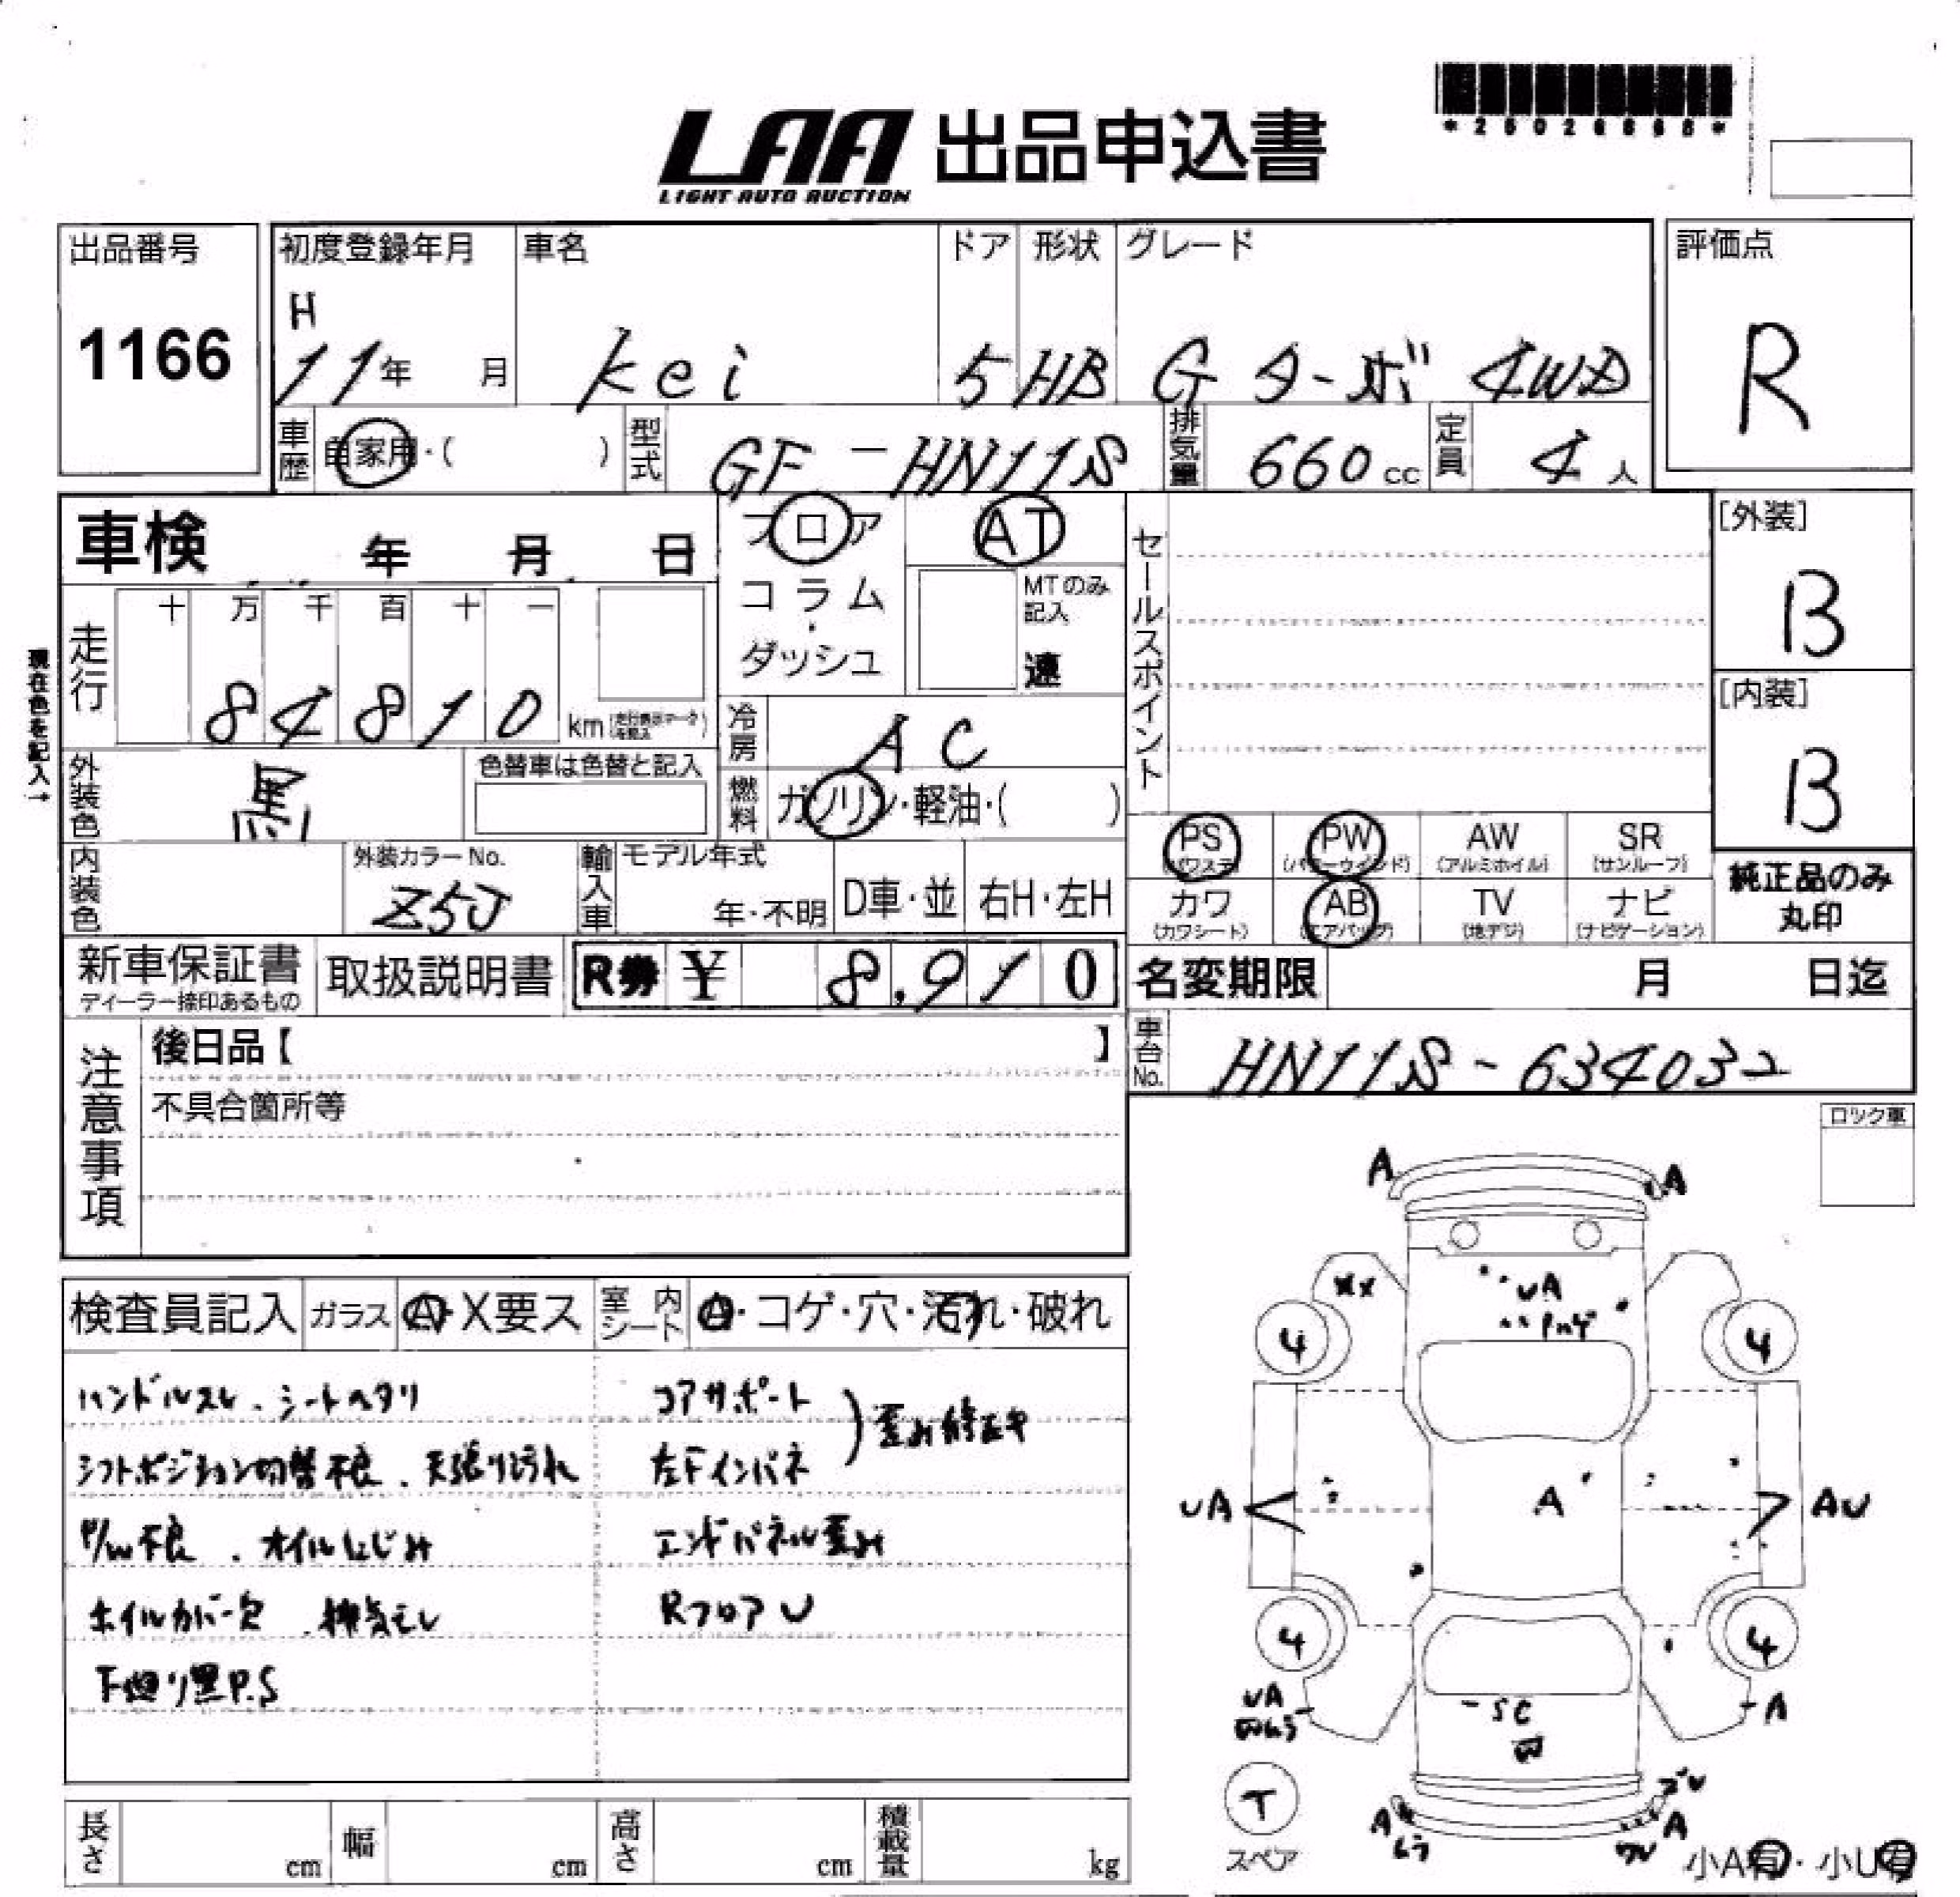 *25026868*
LAA 出品申込書
LIGHT AUTO AUCTION
出品番号
1166
初度登録年月
H
11年 月
車名
kei
ドア
5
形状
HB
グレード
G ターボ 4WD
評価点
R
車歴 自家用・( )
型式 GF-HN11S
排気量 660cc
定員 4人
車検 年 月 日
フロア
コラム
ダッシュ
AT
MTのみ
記入
速
セールスポイント
[外装]
B
現在色を記入→
走行
十 万 千 百 十 一
8 4 8 1 0 km
冷房 AC
[内装]
B
外装色 黒
色替車は色替と記入
燃料 ガソリン・軽油・( )
PS (パワステ)
PW (パワーウインド)
AW (アルミホイル)
SR (サンルーフ)
内装色
外装カラーNo.
Z5J
輸入車
モデル年式
年・不明
D車・並
右H・左H
カワ (カワシート)
AB (エアバッグ)
TV (地デジ)
ナビ (ナビゲーション)
純正品のみ
丸印
新車保証書
ディーラー捺印あるもの
取扱説明書
R券 ¥ 8,910
名変期限 月 日迄
注意事項
後日品【 】
不具合箇所等
車台No. HN11S-634032
ロック車
検査員記入
ガラス A・X要ス
室内シート A・コゲ・穴・汚れ・破れ
ハンドルスレ、シートヘタリ
シフトポジション切替不良、天張り汚れ
P/W不良、オイルにじみ
ホイルカバー欠、排気モレ
下廻り黒P.S
コアサポート
左Fインパネ
歪み修正キ
エンドパネル歪み
RフロアU
A
A
UA
XX
4
4
UA
A
AU
4
4
UA
A
SC
凹
T
スペア
A
A
長さ cm
幅 cm
高さ cm
積載量 kg
小A有・小U有